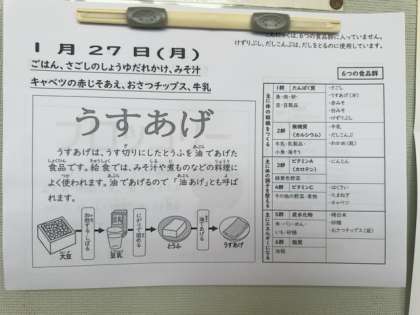 に入っていません。
けずりぶし、だしこんぶは、だしをとるのに使用しています。
1月27日(月)
ごはん、さごしのしょうゆだれかけ、みそ汁
キャベツの赤じそあえ、おさつチップス、牛乳
うすあげ
うすあげは、うす切りにしたとうふを油であげた
食品です。給食では、みそ汁や煮ものなどの料理に
よく使われます。油であげるので「油あげ」とも呼ば
れます。
大豆
豆乳
とうふ
油であげる
うすあげ
6つの食品群
1群 たんぱく質
・さごし
・うすあげ
・赤みそ
・白みそ
2群 無機質
(カルシウム)
・牛乳
牛乳・乳製品・
小魚・海そう
3群 ビタミンA
(カロテン)
・にんじん
緑黄色野菜
4群 ビタミンC
その他の野菜・果物
・はくさい
・たまねぎ
・キャベツ
5群 炭水化物
米・パン・めん・
いも・砂糖
・精白米
・砂糖
・おさつチップス
6群 脂質
油脂